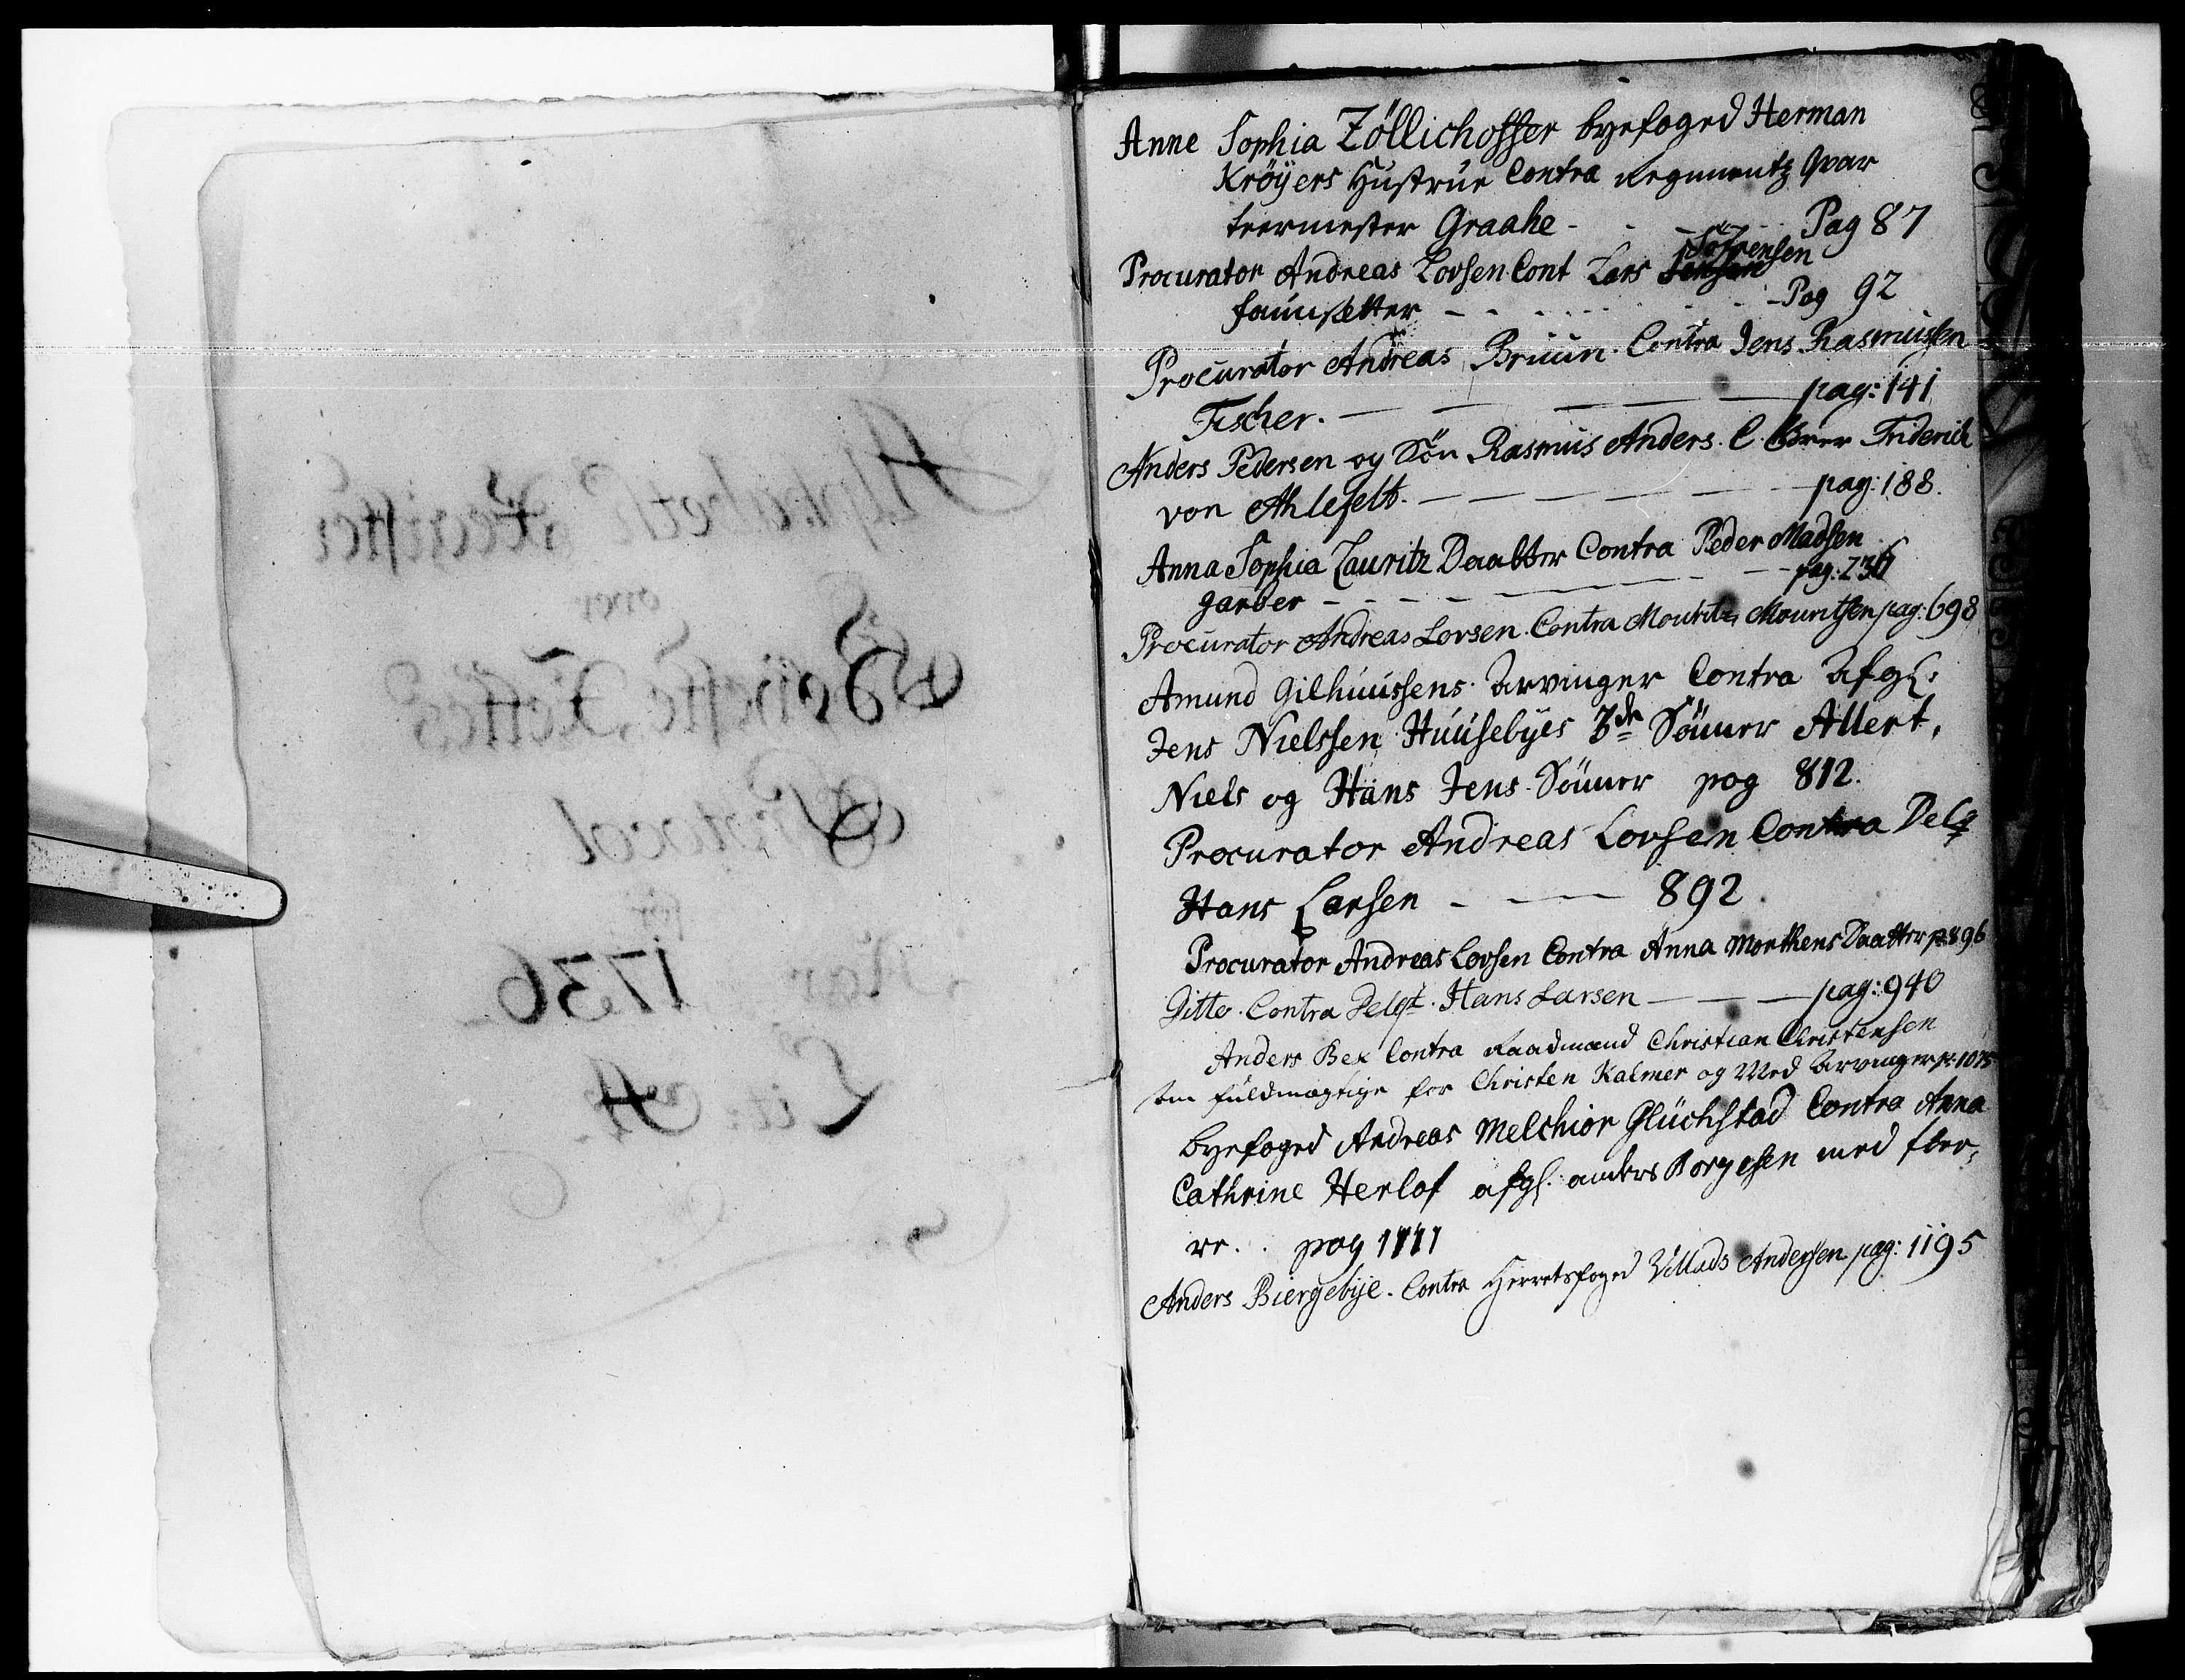 Anne Sophia Zöllichoffer byefoged Herman
Kröÿers Hustrue Contra Regimentz Qvar
teermester Graahe - - - - Pag 87
Procurator Andreas Lovsen Cont Lars Söfrensen
- - - - - Pag 92
Procurator Andreas Bruun. Contra Jens Rasmussen
Fischer. — — — — pag: 141
Anders Pedersen og Sön Rasmus Anders. C. Friderich
von Ahlefelt. — — — — — pag: 188.
Anna Sophia Lauritz Daatter Contra Peder Madsen
garber - - - - - - pag:
Procurator Andreas Lovsen. Contra Mouritz Mouritsen pag: 698
Amund Gilhuussens Arvinger Contra Afgl:
Jens Nielssen Huusebÿes 3de Sönner Allert,
Niels og Hans Jens Sönner pag 812.
Procurator Andreas Lovsen Contra Delq
Hans Larsen - - — 892.
Procurator Andreas Lovsen Contra Anna Morthens Daatter p 896
Ditto. Contra Delqt. Hans Larsen — — — pag: 940
Anders Bex Contra Raadmand Christian Christensen
som fuldmægtige for Christen Kalmer og Med Arvinger p: 1075
byefoged Andreas Melchior Glückstad Contra Anna
Cathrine Herlof afgl. anders Borgesen med fler,
re. . pag 1111
Anders Biergebÿe. Contra Herretsfoged Villads Andersen pag: 1195
Alphabetisk Register
over
Höieste Rettes
Protocol
for
Aar 1736
Lit: A